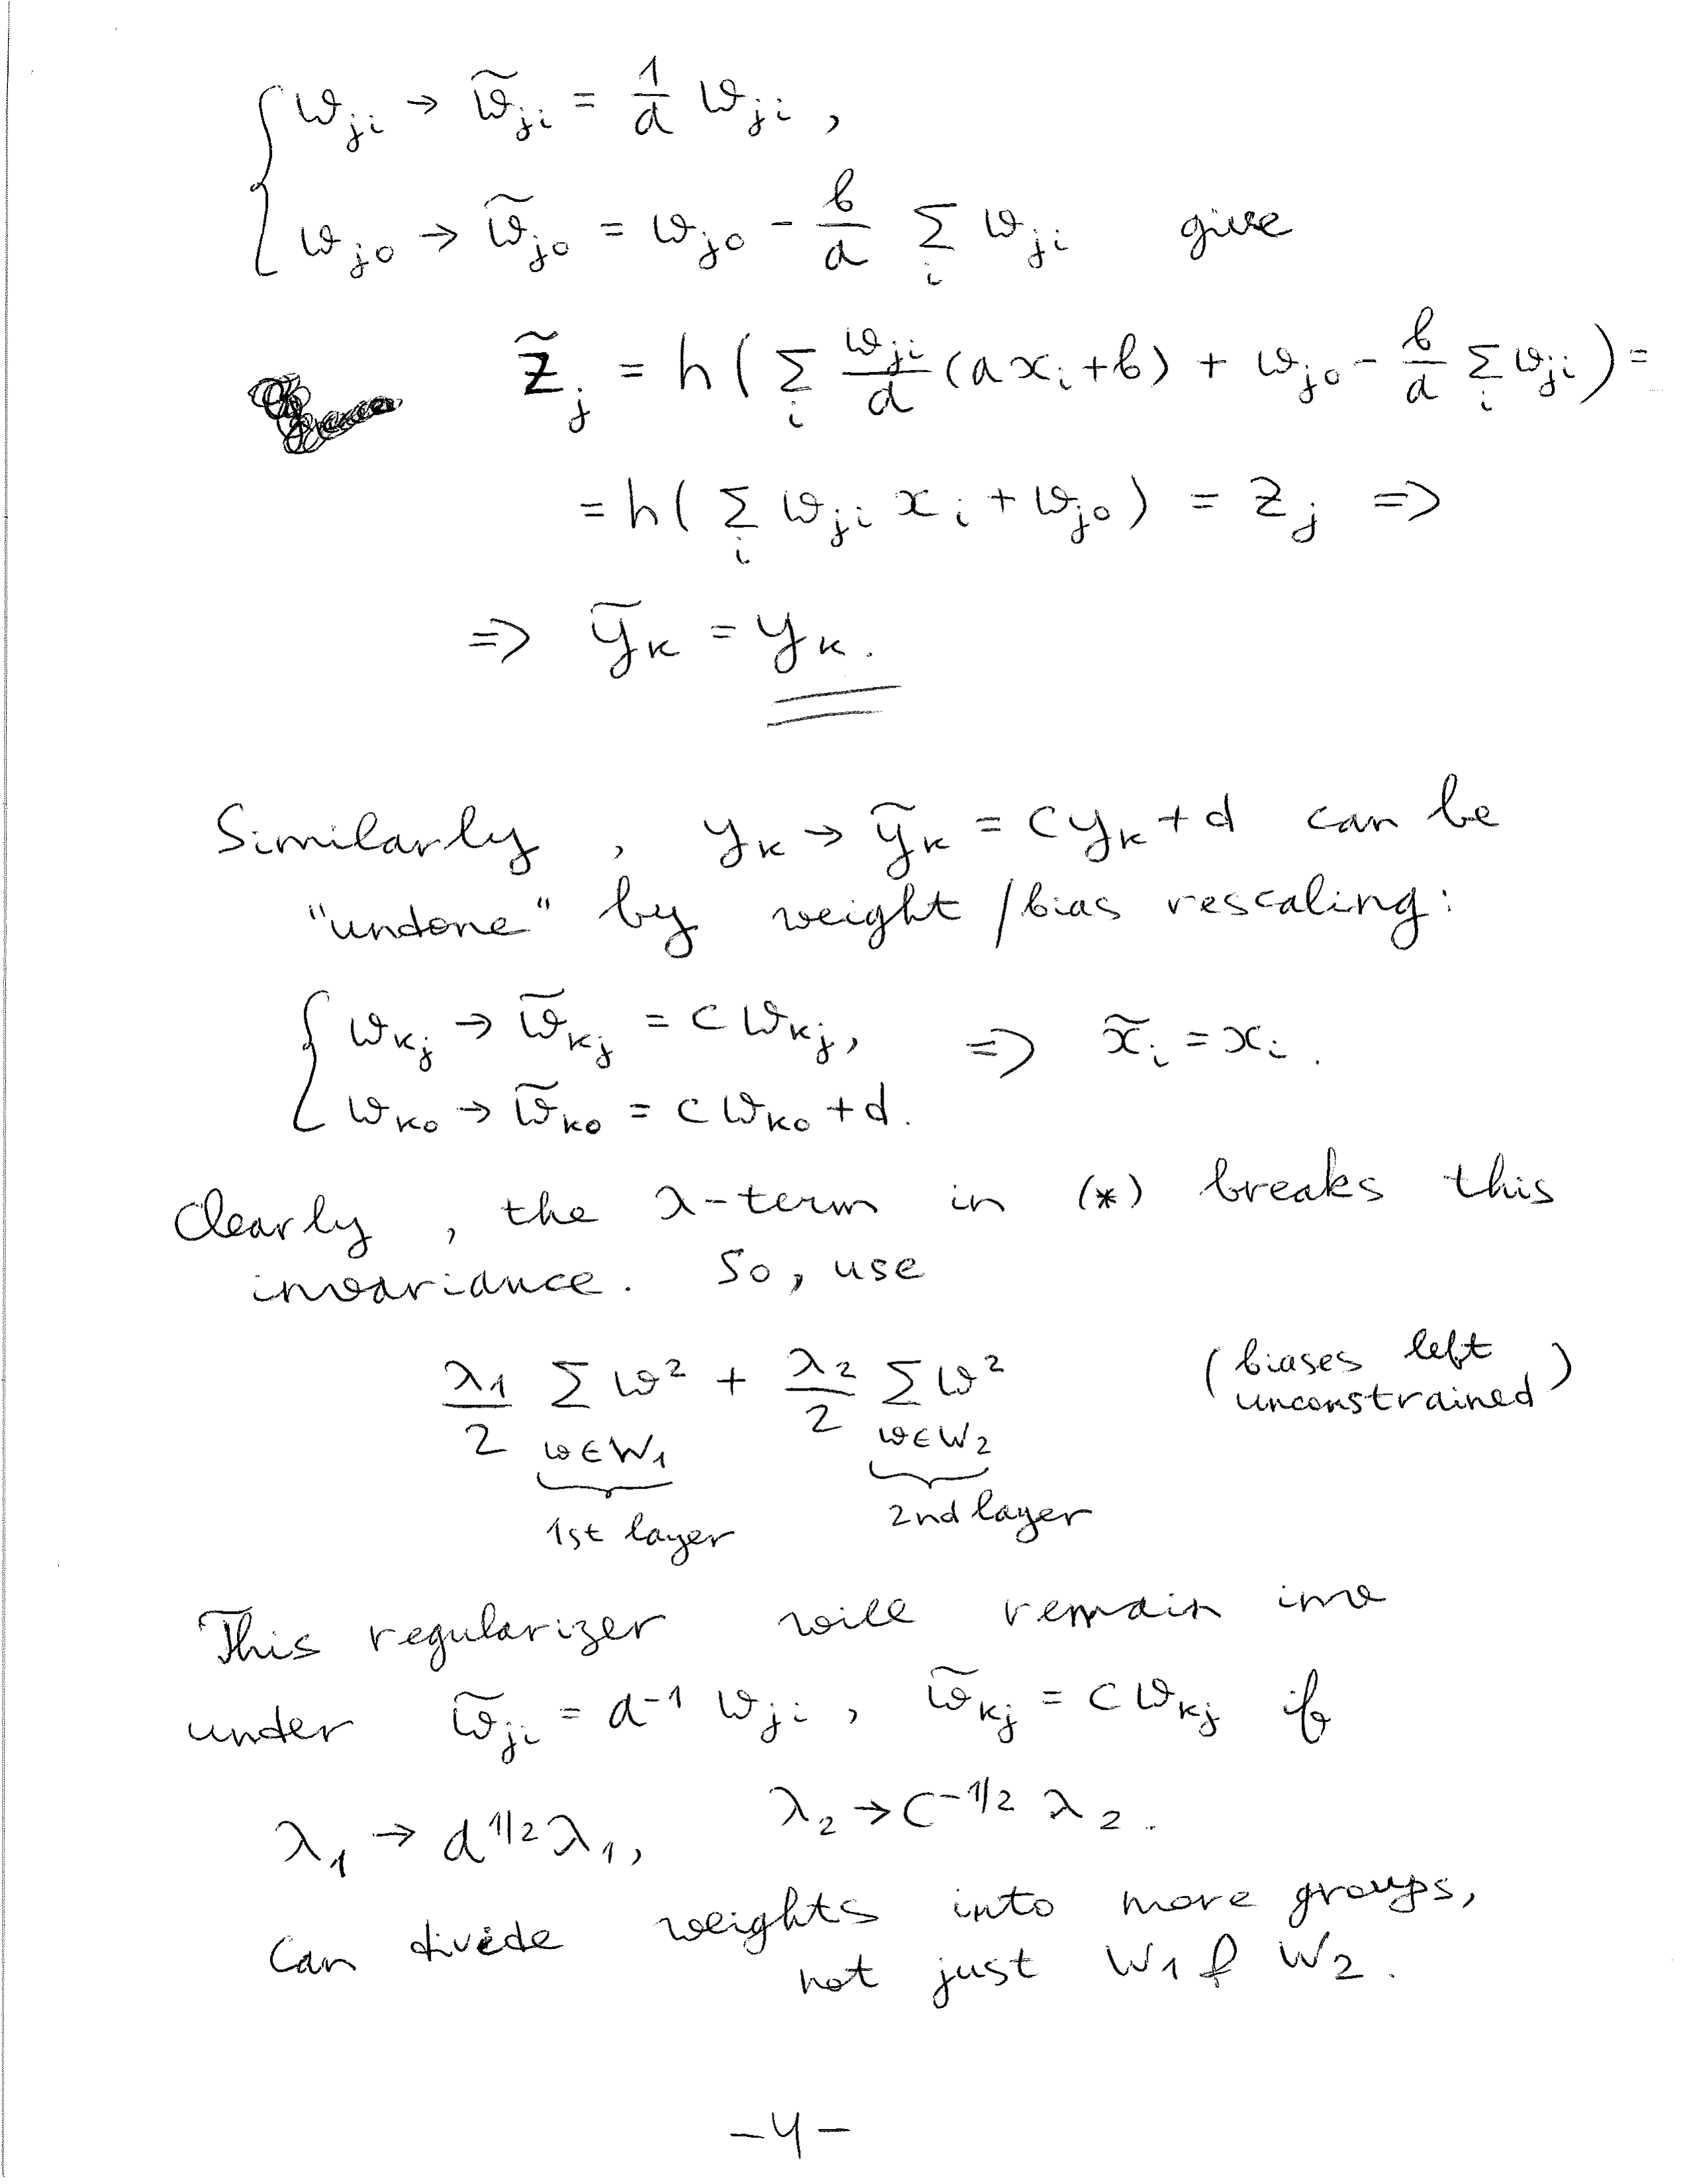 { w_ji → w̃_ji = 1/a w_ji ,
w_j0 → w̃_j0 = w_j0 - b/a Σ_i w_ji give
z̃_j = h ( Σ_i w_ji/a (a x_i + b) + w_j0 - b/a Σ_i w_ji ) =
= h ( Σ_i w_ji x_i + w_j0 ) = z_j =>
=> ỹ_k = y_k .
Similarly , y_k → ỹ_k = c y_k + d can be
"undone" by weight / bias rescaling :
{ w_kj → w̃_kj = c w_kj , => x̃_i = x_i .
w_k0 → w̃_k0 = c w_k0 + d .
Clearly , the λ-term in (*) breaks this
invariance . So , use
λ_1/2 Σ_{w∈W_1} w² + λ_2/2 Σ_{w∈W_2} w² ( biases left unconstrained )
1st layer 2nd layer
This regularizer will remain inv
under w̃_ji = a^{-1} w_ji , w̃_kj = c w_kj if
λ_1 → a^{1/2} λ_1 , λ_2 → c^{-1/2} λ_2 .
Can divide weights into more groups ,
not just W_1 & W_2 .
- 4 -